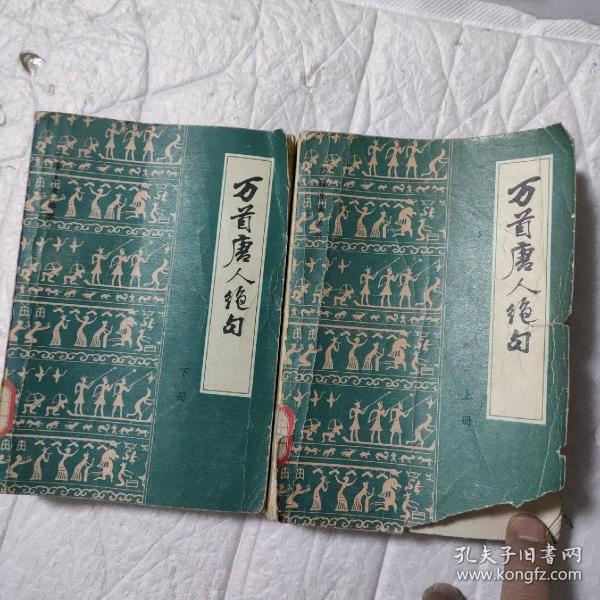 万首唐人绝句
下册
万首唐人绝句
上册
孔夫子旧书网
www.kongfz.com